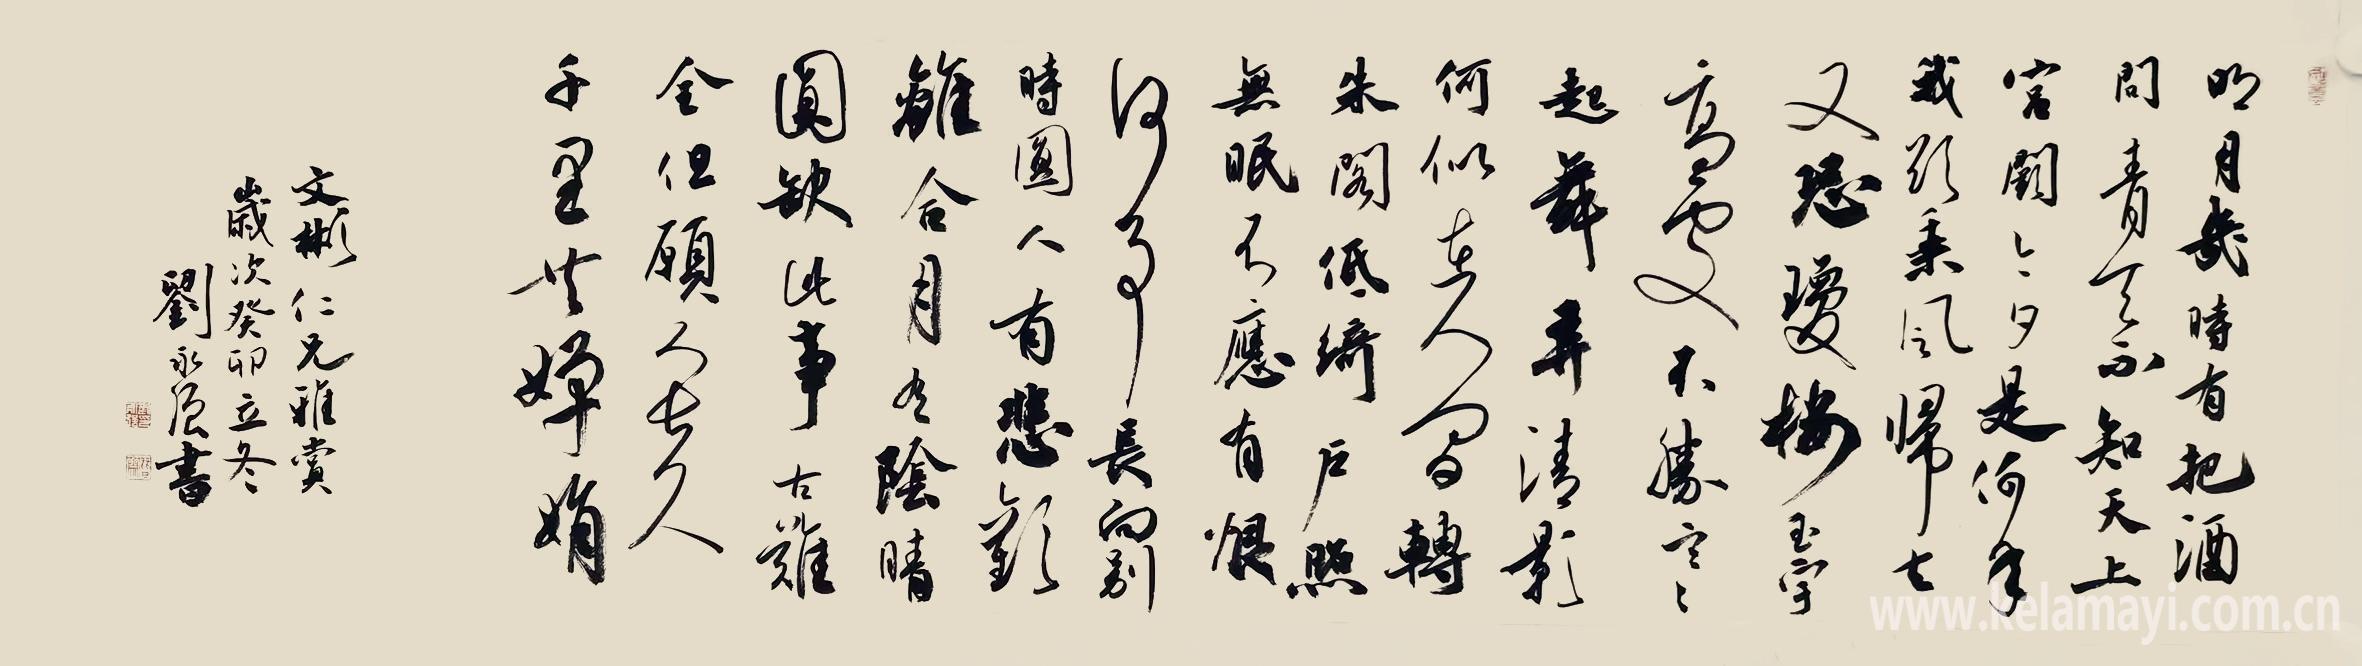 明月幾時有把酒
問青天不知天上
宮闕今夕是何年
我欲乘風歸去
又恐瓊樓玉宇
高處不勝寒
起舞弄清影
何似在人間轉
朱閣低綺戶照
無眠不應有恨
何事長向別
時圓人有悲歡
離合月有陰晴
圓缺此事古難
全但願人長久
千里共嬋娟
文彬仁兄雅賞
歲次癸卯立冬
劉永強書
www.kelamayi.com.cn